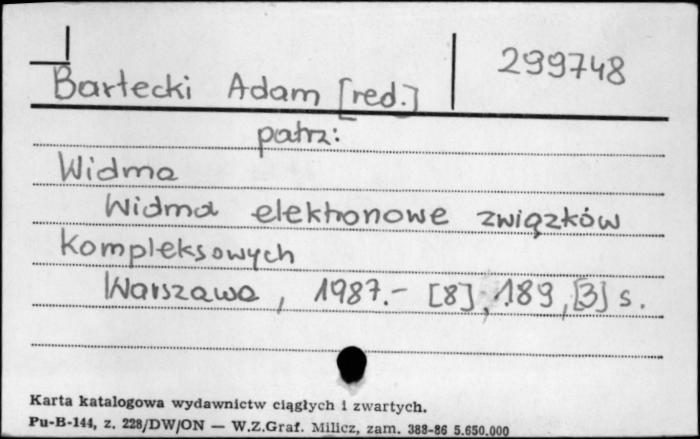 299748
Bartecki Adam [red.]
patrz:
Widma
Widma elektronowe związków
kompleksowych
Warszawa, 1987.- [8], 189, [3] s.
Karta katalogowa wydawnictw ciągłych i zwartych.
Pu-B-144, z. 228/DW/ON — W.Z.Graf. Milicz, zam. 388-86 5.650.000